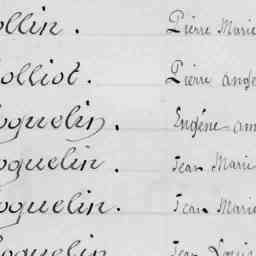 ollin. Pierre Marie
olliot. Pierre ange
oquelin. Eugène am
oquelin. Jean Marie
oquelin. Jean Marie
oquelin Jean Louis